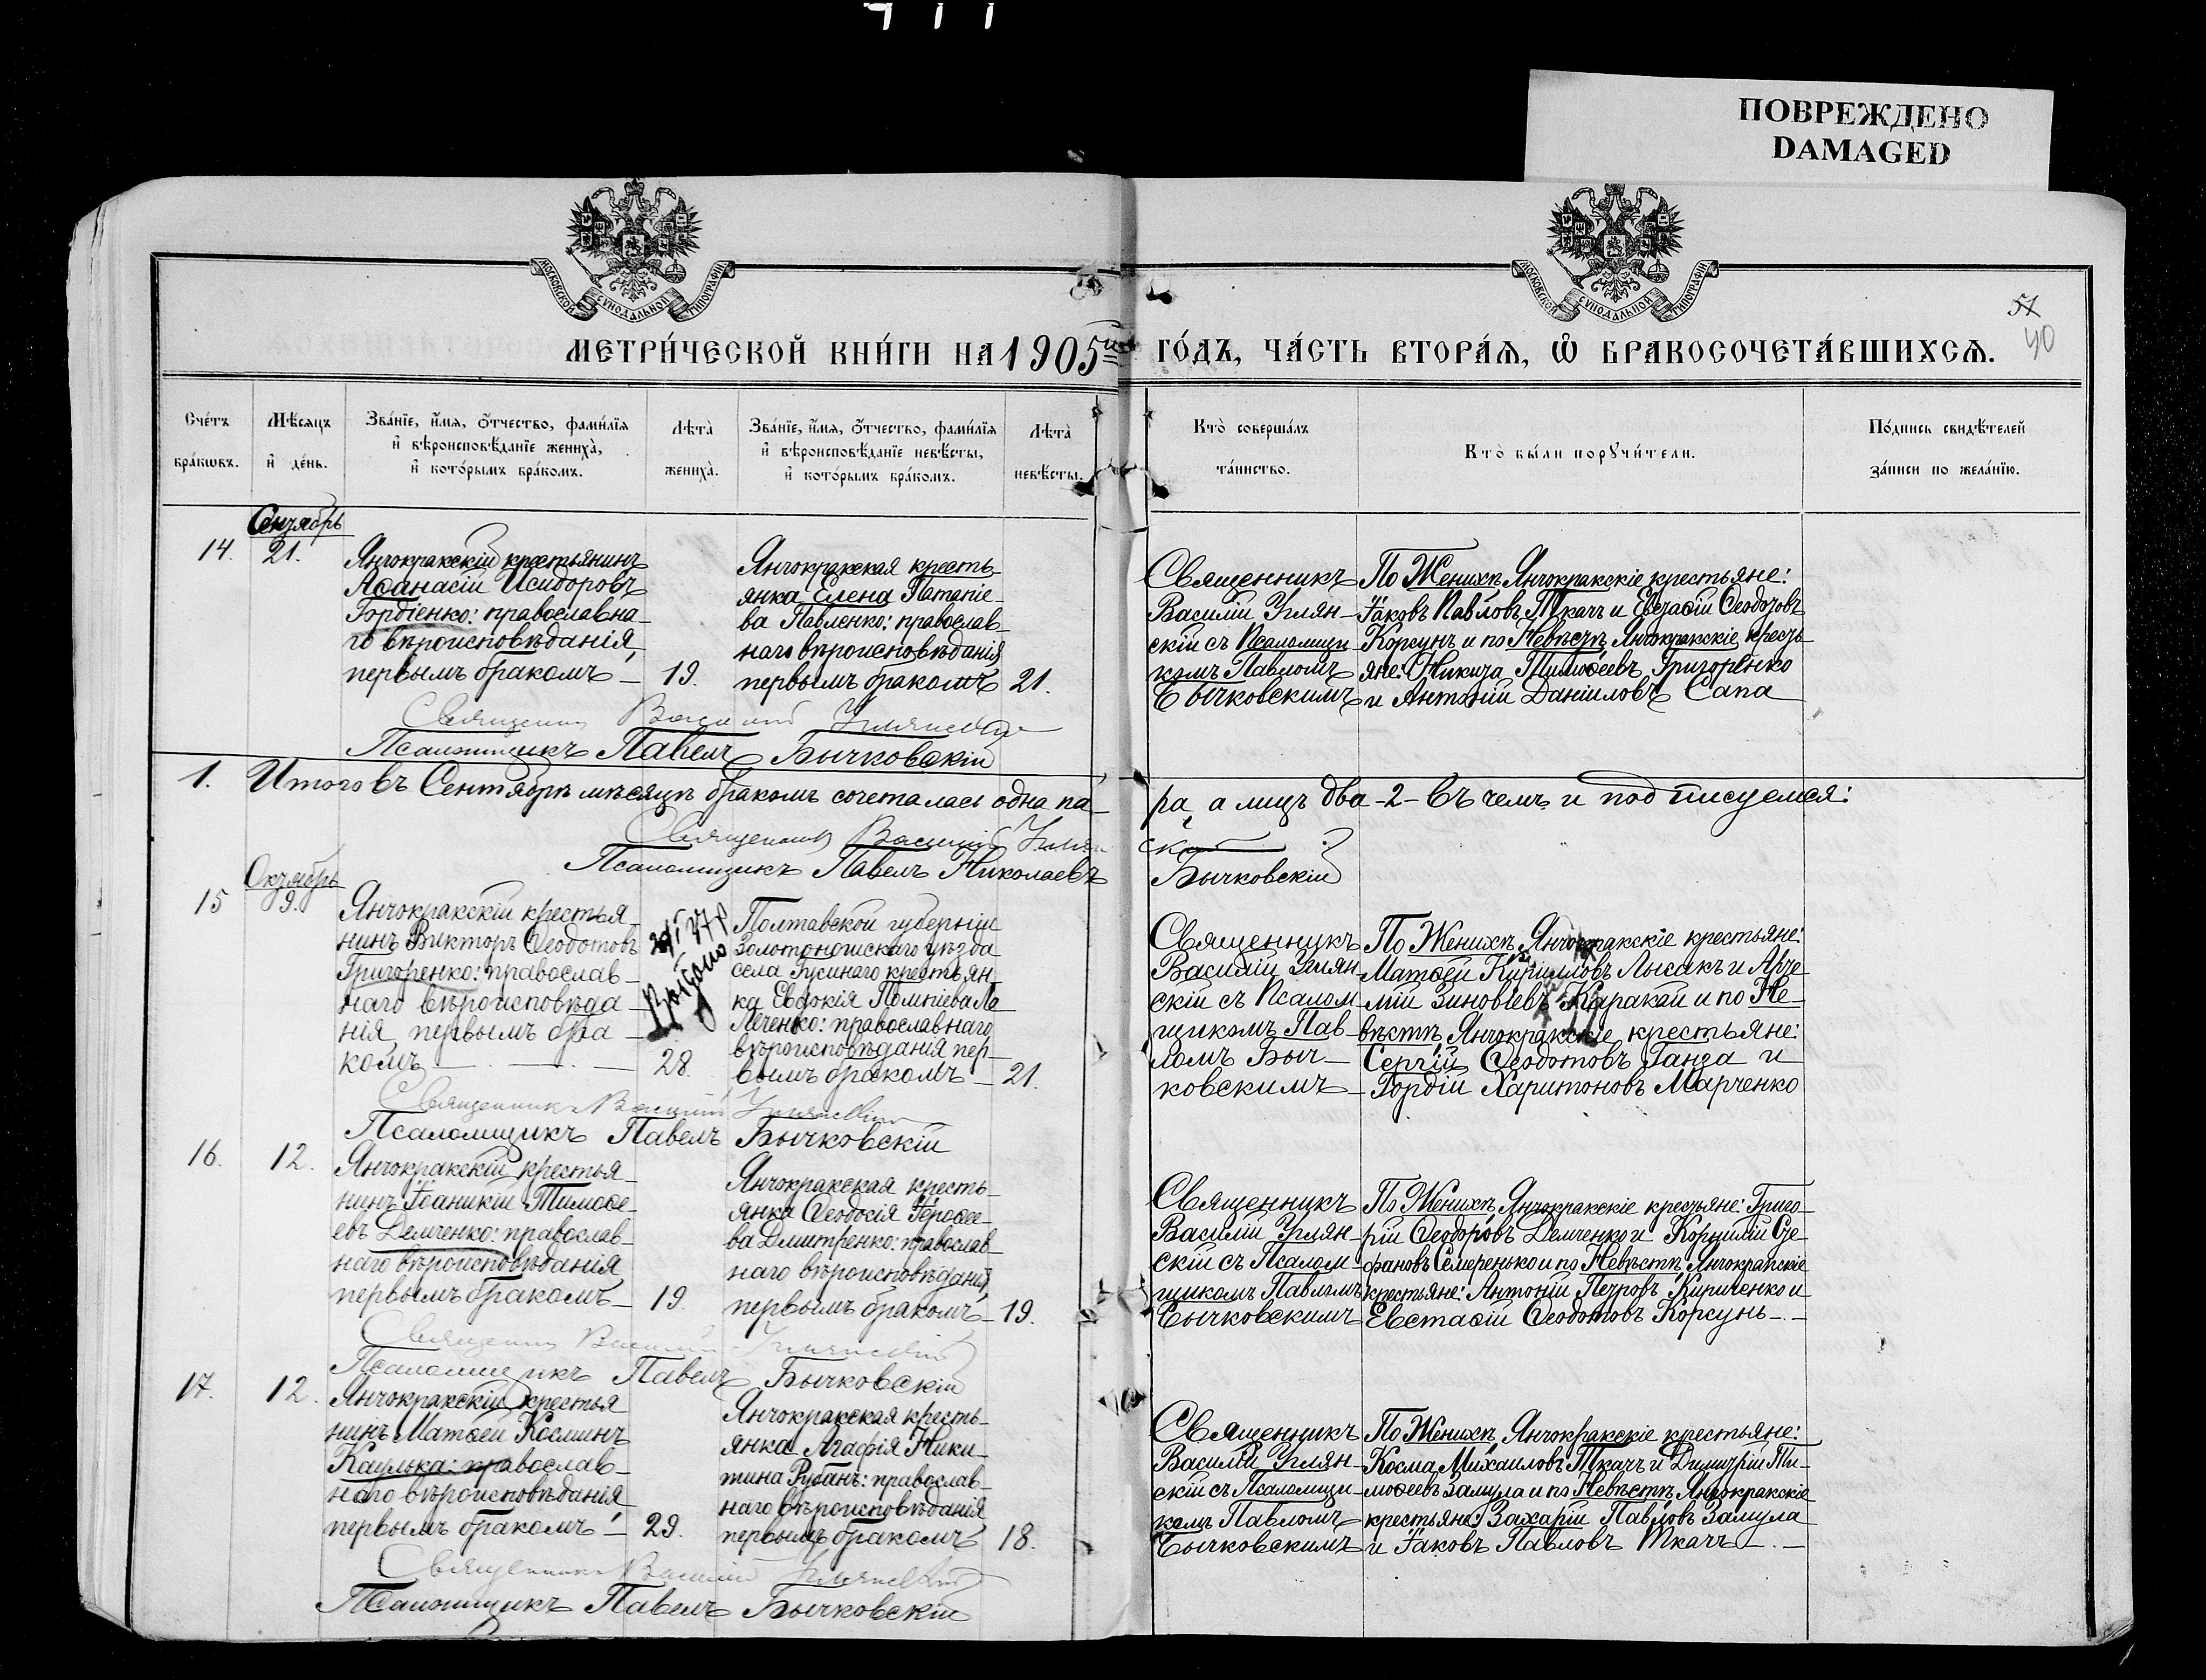 ПОВРЕЖДЕНО
DAMAGED
МОСКОВСКОЙ СѴНОДАЛЬНОЙ ТИПОГРАФІИ
МОСКОВСКОЙ СѴНОДАЛЬНОЙ ТИПОГРАФІИ
51
40
МЕТРИ́ЧЕСКОЙ КНИ́ГИ НА 1905 ГО́ДЪ, ЧА́СТЬ ВТОРА́Ѧ, Ѡ҆ БРАКОСОЧЕТА́ВШИХСѦ.
Сче́тъ бра́кѡвъ.
Мѣ́сѧцъ и҆ де́нь.
Зва́нїе, и҆́мѧ, ѻ҆́тчество, фами́лїѧ
и҆ вѣроисповѣ́данїе жениха̀,
и҆ кото́рымъ бра́комъ.
Лѣта̀ жениха̀.
Зва́нїе, и҆́мѧ, ѻ҆́тчество, фами́лїѧ
и҆ вѣроисповѣ́данїе невѣ́сты,
и҆ кото́рымъ бра́комъ.
Лѣта̀ невѣ́сты.
Кто̀ соверша́лъ та́инство.
Кто̀ бы́ли порꙋчи́тели.
По́дпись свидѣ́телей за́писи по жела́нїю.
Сентябрь
14. 21.
Янчокракскій крестьянинъ
Аѳанасій Исидоровъ
Гордіенко: православна-
го вѣроисповѣданія
первымъ бракомъ — 19.
Янчокракская кресть-
янка Елена
ва Павленко: православ-
наго вѣроисповѣданія
первымъ бракомъ 21.
Священникъ
Василій Углян-
скій съ Псаломщи-
комъ Павломъ
Бычковскимъ
По Женихѣ Янчокракскіе крестьяне:
Іаковъ Павловъ Ткачъ и Евстаѳій Ѳеодотовъ
Корсунъ и по Невѣстѣ Янчокракскіе кресть-
яне: Никита Тимоѳеевъ Григоренко
и Антоній Даніиловъ Сапа
Священникъ Василій Углянскій
Псаломщикъ Павелъ Бычковскій
1. Итого въ Сентябрѣ мѣсяцѣ бракомъ сочеталась одна па-
ра, а лицъ два -2- въ чемъ и подписуемся:
Священникъ Василій Углян
скій
Псаломщикъ Павелъ Николаевъ
Бычковскій
Октябрь
15 9.
Янчокракскій крестья-
нинъ Викторъ Ѳеодотовъ
Григоренко: православ-
наго вѣроисповѣда-
нія первымъ бра-
комъ — 28.
Полтавской губерніи
Золотоношскаго уѣзда
села Гусинаго крестьян-
ка Евдокія
Леченко: православнаго
вѣроисповѣданія пер-
вымъ бракомъ — 21.
Священникъ
Василій Углян-
скій съ Псалом-
щикомъ Пав-
ломъ Быч-
ковскимъ
По Женихѣ Янчокракскіе крестьяне:
Матѳей Кирилловъ Лысакъ и Арте-
мій Зиновіевъ Каракай и по Не-
вѣстѣ Янчокракскіе крестьяне:
Сергій Ѳеодотовъ Ганза и
Гордій Харитоновъ Марченко
Священникъ Василій Углянскій
Псаломщикъ Павелъ Бычковскій
16. 12.
Янчокракскій крестья-
нинъ Іоаникій Тимоѳе-
евъ Демченко: православ-
наго вѣроисповѣданія
первымъ бракомъ — 19.
Янчокракская кресть-
янка Ѳеодосія Героѳее-
ва Дмитренко: православ-
наго вѣроисповѣданія
первымъ бракомъ — 19.
Священникъ
Василій Углян-
скій съ Псалом-
щикомъ Павломъ
Бычковскимъ
По Женихѣ Янчокракскіе крестьяне: Григо-
рій Ѳеодоровъ Демченко и Корнилій Сте-
фановъ Семеренько и по Невѣстѣ Янчокракскіе
крестьяне: Антоній Петровъ Кириченко и
Евстаѳій Ѳеодотовъ Корсунь —
Священникъ Василій Углянскій
Псаломщикъ Павелъ Бычковскій
17. 12.
Янчокракскій крестья-
нинъ Матѳей Косминъ
Каулька: православ-
наго вѣроисповѣданія
первымъ бракомъ — 29.
Янчокракская кресть-
янка Агафія Ники-
тина Рубанъ: православ-
наго вѣроисповѣданія
первымъ бракомъ 18.
Священникъ
Василій Углян-
скій съ Псаломщи-
комъ Павломъ
Бычковскимъ
По Женихѣ Янчокракскіе крестьяне:
Косма Михаиловъ Ткачъ и Димитрій Ти-
моѳеевъ Замула и по Невѣстѣ Янчокракскіе
крестьяне: Захарій Павловъ Замула
и Іаковъ Павловъ Ткачъ —
Священникъ Василій Углянскій
Псаломщикъ Павелъ Бычковскій